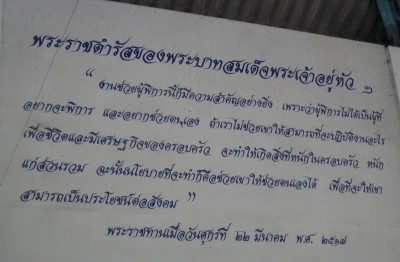 พระราชดำรัสของพระบาทสมเด็จพระเจ้าอยู่หัว ๆ
“ งานช่วยผู้พิการนี้ก็มีความสำคัญอย่างยิ่ง เพราะว่าผู้พิการไม่ได้เป็นผู้ที่
อยากจะพิการ และอยากช่วยตนเอง ถ้าเราไม่ช่วยเขาให้สามารถที่จะปฏิบัติงานอะไร
เพื่อชีวิตและมีเศรษฐกิจของครอบครัว จะทำให้เกิดสิ่งที่หนักในครอบครัว หนัก
แก่ส่วนรวม ฉะนั้นนโยบายที่จะทำก็คือช่วยเขาให้ช่วยตนเองได้ เพื่อที่จะให้เขา
สามารถเป็นประโยชน์ต่อสังคม ”
พระราชทานเมื่อวันศุกร์ที่ ๒๒ มีนาคม พ.ศ. ๒๕๑๗